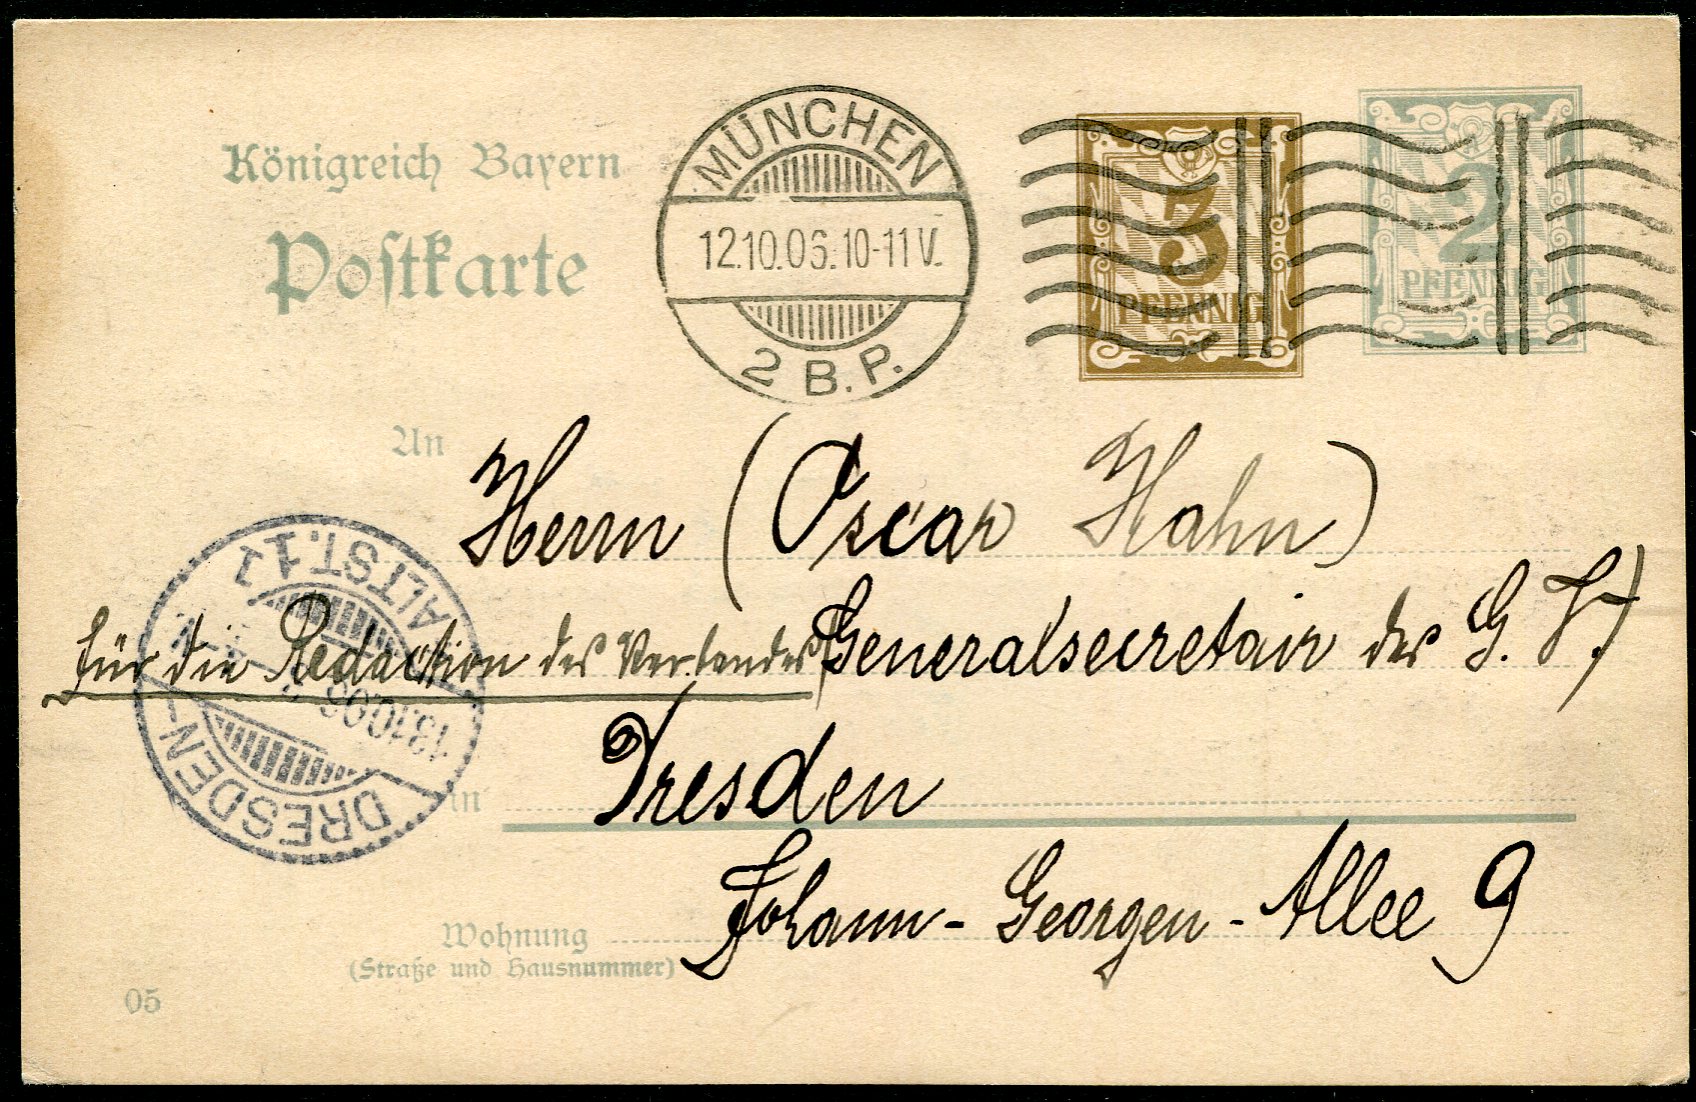 Königreich Bayern
Postkarte
MÜNCHEN
12.10.06. 10-11 V.
2 B.P.
3
PFENNIG
2
PFENNIG
An
Herrn (Oscar Hahn)
für die Redaction des Verbandes Generalsecretair des G. V.)
DRESDEN-ALTST.1
13.10.06
in
Dresden
Johann-Georgen-Allee 9
Wohnung
(Straße und Hausnummer)
05